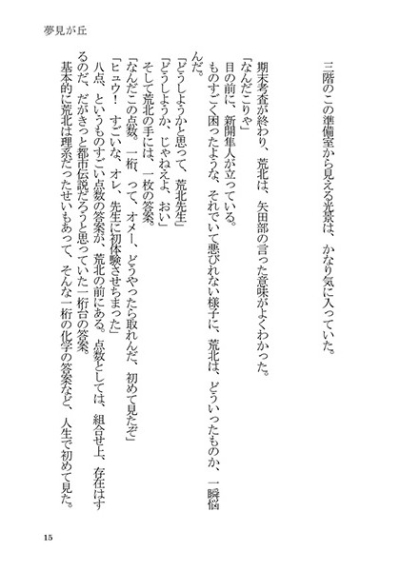 夢見が丘
三階のこの準備室から見える光景は、かなり気に入っていた。
期末考査が終わり、荒北は、矢田部の言った意味がよくわかった。
「なんだこりゃ」
目の前に、新開隼人が立っている。
ものすごく困ったような、それでいて悪びれない様子に、荒北は、どういったものか、一瞬悩
んだ。
「どうしようかと思って、荒北先生」
「どうしようか、じゃねえよ、おい」
そして荒北の手には、一枚の答案。
「なんだこの点数。一桁、って、オメー、どうやったら取れんだ、初めて見たぞ」
「ヒュウ！　すごいな、オレ、先生に初体験させちまった」
八点、というものすごい点数の答案が、荒北の前にある。点数としては、組合せ上、存在はす
るのだ、だがきっと都市伝説だろうと思っていた一桁台の答案。
基本的に荒北は理系だったせいもあって、そんな一桁の化学の答案など、人生で初めて見た。
15